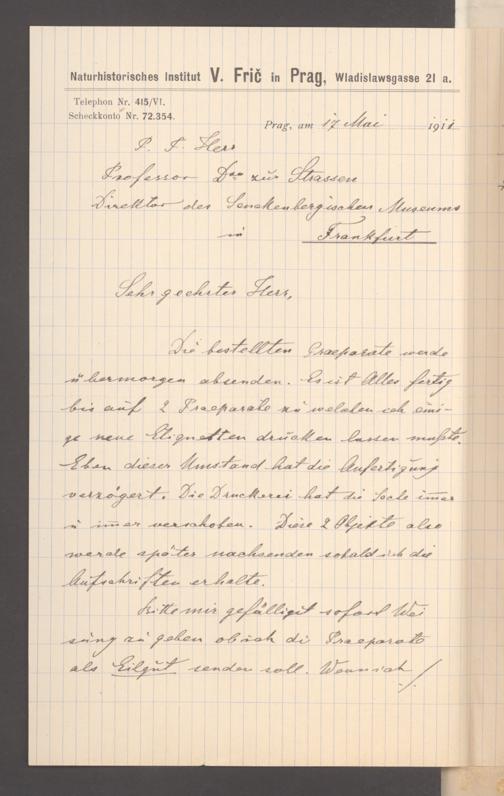 Naturhistorisches Institut V. Frič in Prag, Wladislawsgasse 21 a.
Telephon Nr. 415/VI.
Scheckkonto Nr. 72.354.
Prag, am 17 Mai 1911
P. T. Herr
Professor Dr. zur Strassen
Direktor des Senckenbergischen Museums
in Frankfurt
Sehr geehrter Herr,
Die bestellten Praeparate werde
übermorgen absenden. Es ist Alles fertig
bis auf 2 Praeparate zu welchen ich eini-
ge neue Etiquetten drucken lassen mußte.
Eben dieser Umstand hat die Anfertigung
verzögert. Die Druckerei hat die Sache immer
u immer verschoben. Diese 2 Objekte also
werde später nachsenden sobald ich die
Aufschriften erhalte.
Bitte mir gefälligst sofort Wei
sung zu geben ob ich di Praeparate
als Eilgut senden soll. Wenn ich ./.